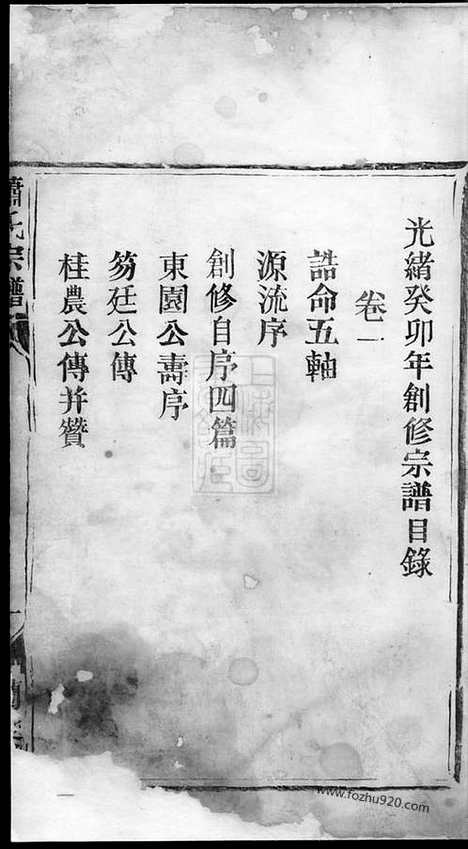 光緒癸卯年創修宗譜目錄
卷一
誥命五軸
源流序
創修自序四篇
東園公壽序
笏廷公傳
桂農公傳并贊
蕭氏宗譜
www.fozhu920.com